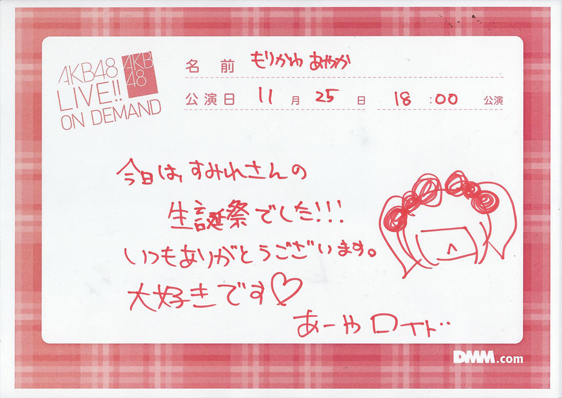 AKB48
LIVE!!
ON DEMAND
AKB
48
名前 もりかわ あやか
公演日 11月 25日 18:00 公演
今日は、すみれさんの
生誕祭でした!!!
いつもありがとうございます。
大好きです♡
あーや
DMM.com